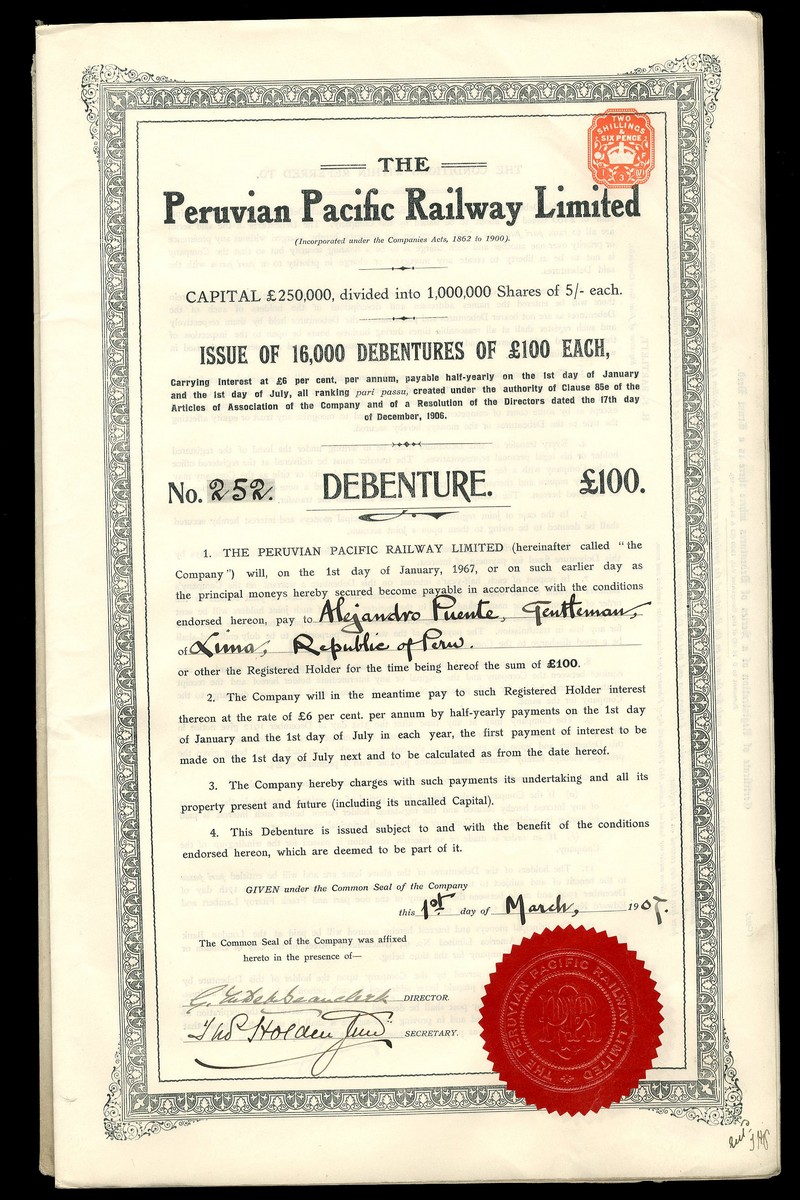 TWO
SHILLINGS
&
SIX PENCE
THE
Peruvian Pacific Railway Limited
(Incorporated under the Companies Acts, 1862 to 1900).
CAPITAL £250,000, divided into 1,000,000 Shares of 5/- each.
ISSUE OF 16,000 DEBENTURES OF £100 EACH,
Carrying Interest at £6 per cent. per annum, payable half-yearly on the 1st day of January
and the 1st day of July, all ranking pari passu, created under the authority of Clause 85e of the
Articles of Association of the Company and of a Resolution of the Directors dated the 17th day
of December, 1906.
No. 252. DEBENTURE. £100.
1. THE PERUVIAN PACIFIC RAILWAY LIMITED (hereinafter called "the
Company") will, on the 1st day of January, 1967, or on such earlier day as
the principal moneys hereby secured become payable in accordance with the conditions
endorsed hereon, pay to Alejandro Puente, Gentleman,
of Lima, Republic of Peru.
or other the Registered Holder for the time being hereof the sum of £100.
2. The Company will in the meantime pay to such Registered Holder interest
thereon at the rate of £6 per cent. per annum by half-yearly payments on the 1st day
of January and the 1st day of July in each year, the first payment of interest to be
made on the 1st day of July next and to be calculated as from the date hereof.
3. The Company hereby charges with such payments its undertaking and all its
property present and future (including its uncalled Capital).
4. This Debenture is issued subject to and with the benefit of the conditions
endorsed hereon, which are deemed to be part of it.
GIVEN under the Common Seal of the Company
this 1st day of March, 1907.
The Common Seal of the Company was affixed
hereto in the presence of—
DIRECTOR.
Thos Holden Junr. SECRETARY.
THE PERUVIAN PACIFIC RAILWAY LIMITED